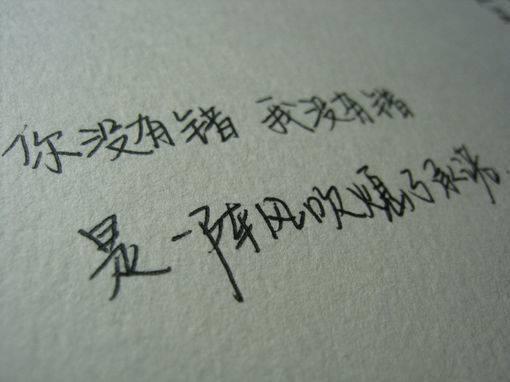 你没有错 我没有错
是一阵风吹熄了承诺